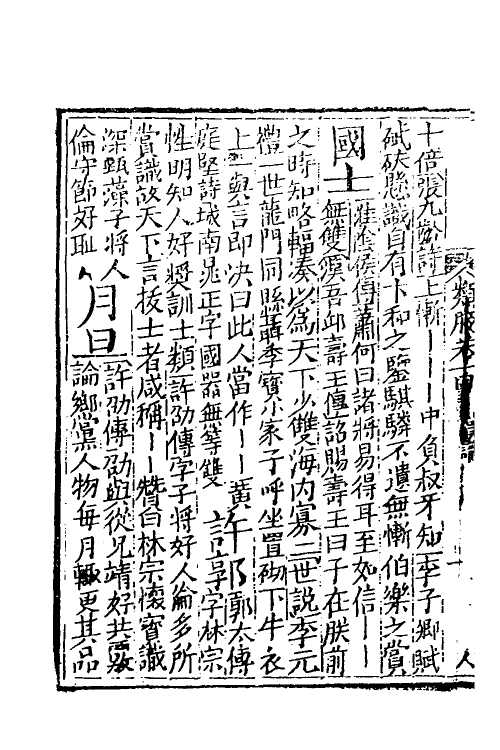 十倍張九齡詩上慚丨丨丨中負叔牙知李子卿賦
碔砆懸識自有卞和之鑒騏驎不遺無慚伯樂之賞
國士淮陰侯傳蕭何曰諸將易得耳至如信丨丨
無雙漢吾邱壽王傳詔賜壽王曰子在朕前
之時知略輻湊以爲天下少雙海内寡二世說李元
禮一世龍門同縣聶季寶小家子呼坐置砌下牛衣
上與言即决曰此人當作丨丨黄
庭堅詩城南晁正字國器無等雙許郭郭太傳
言字林宗
性明知人好奬訓士類許劭傳字子將好人倫多所
賞識故天下言拔士者咸稱丨丨贊曰林宗懷寶識
深甄藻子將人
倫守節好耻月旦許劭傳劭與從兄靖好共覈
論鄉黨人物每月輙更其品
人